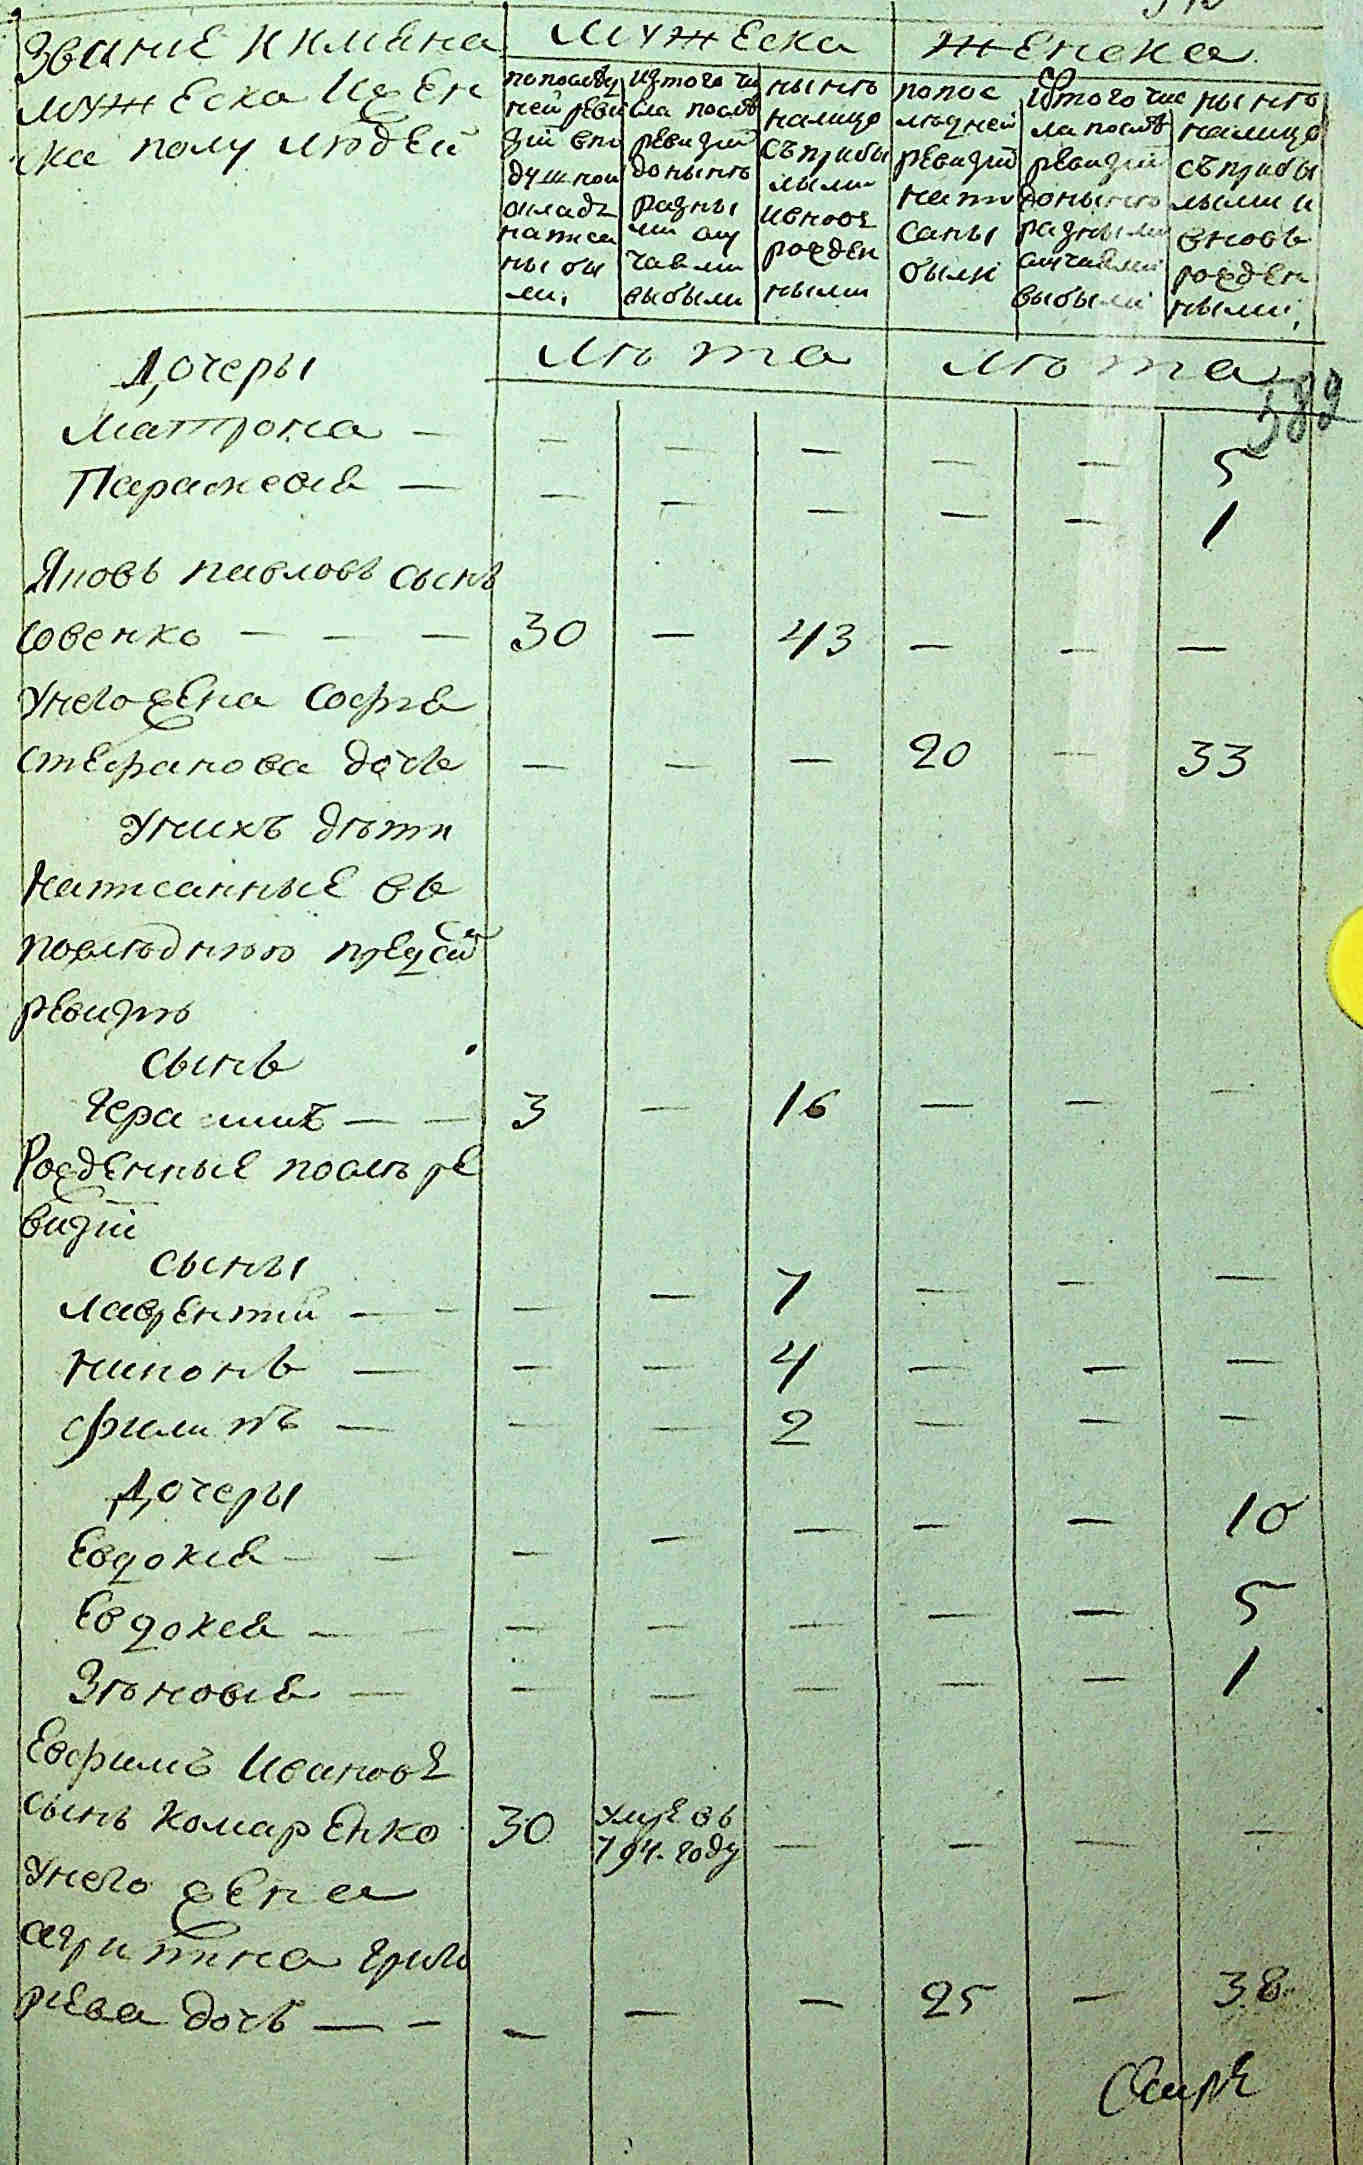 Звание и имяна
мужеска и жен
ска полу людей
мужеска
женска
попослѣд
ней реви
зїи впо
душнои
окладъ
написа
ны бы
ли,
изтого чи
сла послѣ
ревизїи
донынѣ
разны
ми слу
чаями
выбыли
нынѣ
налицо
съ прибы
лыми
ивновь
рожден
ными
попос
лѣдней
ревизїи
напи
саны
были
Изтого чис
ла послѣ
ревизїи
донынѣ
разными
случаями
выбыли
нынѣ
налицо
съ прибы
лыми и
вновь
рожден
ными,
лѣта
лѣта
582
Дочеры
Матрона — — — — — — 5
Параскевия — — — — — — 1
Яковъ павловъ сынъ
Совенко — — — 30 — 43 — — —
Унего жена Софїя
Стефанова дочь — — — 20 — 33
Унихъ дѣти
написанные въ
послѣднюю предъ сим
ревизїю
сынъ
Герасимъ — — 3 — 16 — — —
Рожденные послѣ ре
визїи
сыны
Лаврентїй — — — — 7 — — —
Никонъ — — — 4 — — —
Филипъ — — — 2 — — —
Дочеры
Евдокия — — — — — — — 10
Евдокия — — — — — — — 5
Зѣновия — — — — — — 1
Евфимъ Ивановъ
сынъ Комаренко 30 умре въ
794. году — — — —
Унего жена
агрипина григо
риева дочь — — — — — 25 — 38